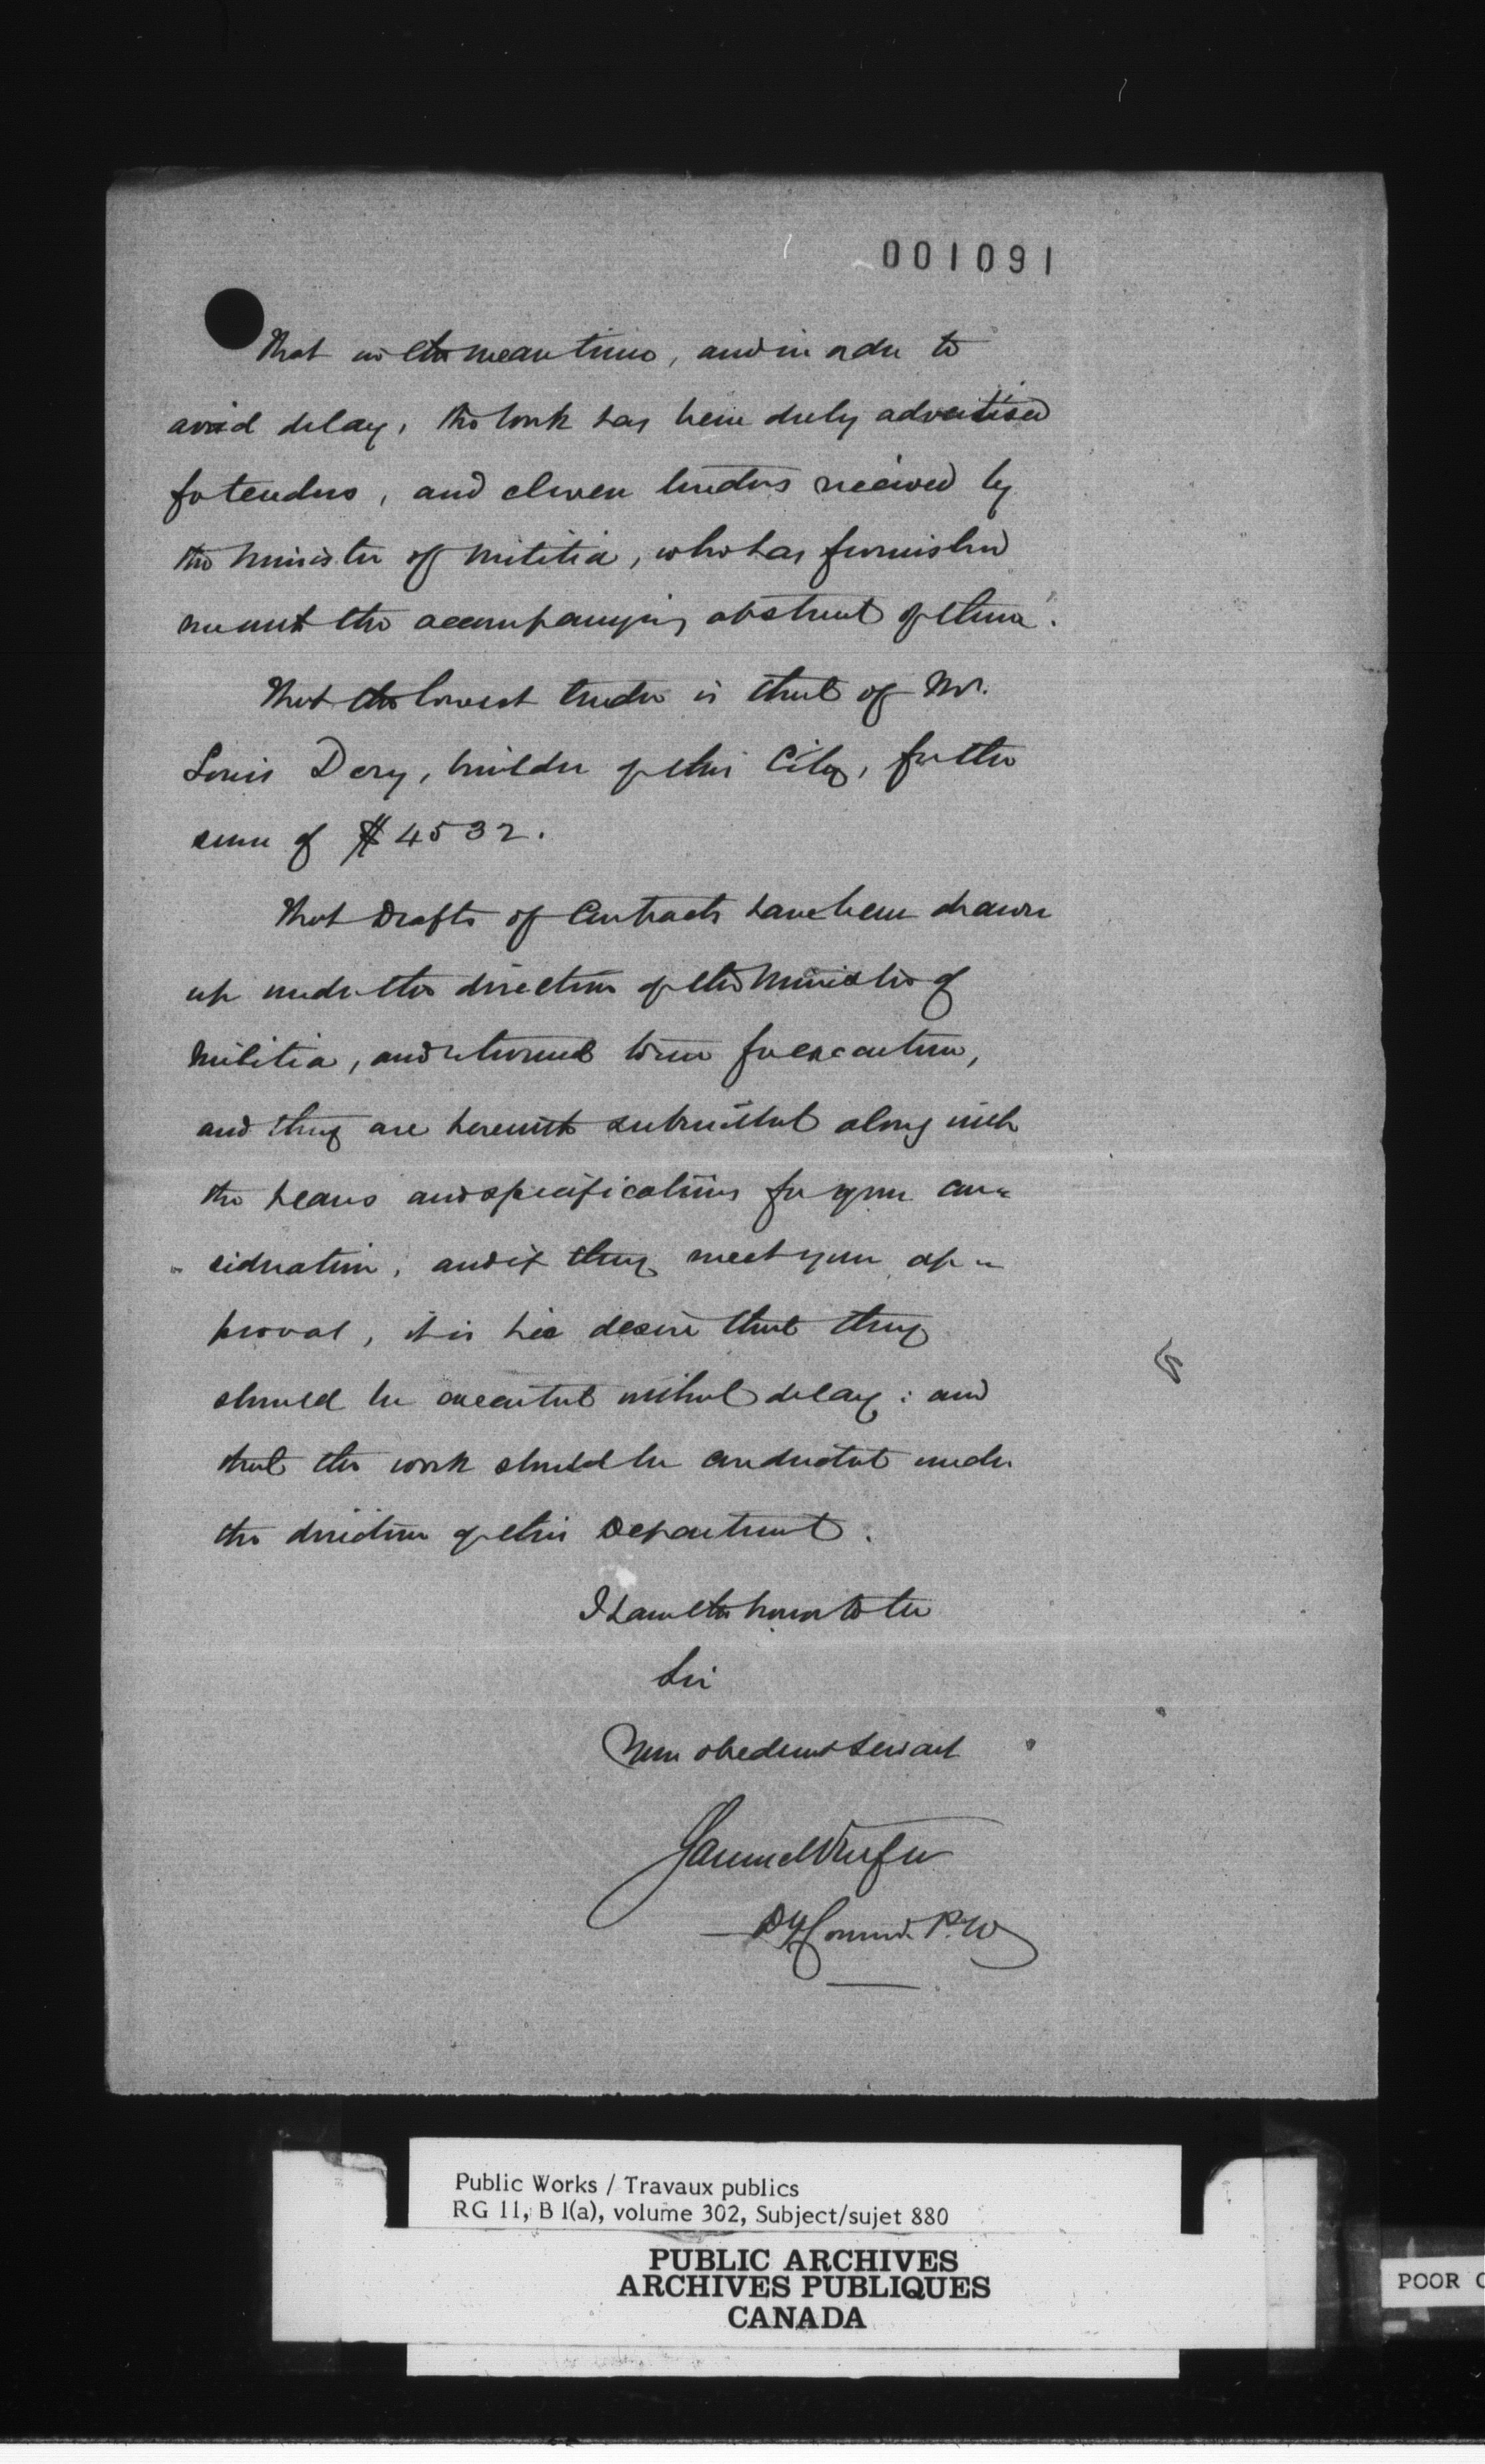 001091
That in the mean time, and in order to
avoid delay, the work has been duly advertised
for tenders, and eleven tenders received by
the Minister of Militia, who has furnished
me with the accompanying abstract of them.
That the lowest tender is that of Mr.
Louis Dery, builder of this City, for the
sum of $4532.
That Drafts of Contracts have been drawn
up under the direction of the Minister of
Militia, and returned to me for execution,
and they are herewith submitted along with
the plans and specifications for your con=
"sideration, and if they meet your ap=
proval, it is his desire that they
should be executed without delay: and
that the work should be conducted under
the direction of this Department.
I have the honor to be
Sir
Your obedient Servant
Samuel Keefer
Dy Commr. P.W
Public Works / Travaux publics
RG 11, B 1(a), volume 302, Subject/sujet 880
PUBLIC ARCHIVES
ARCHIVES PUBLIQUES
CANADA
POOR